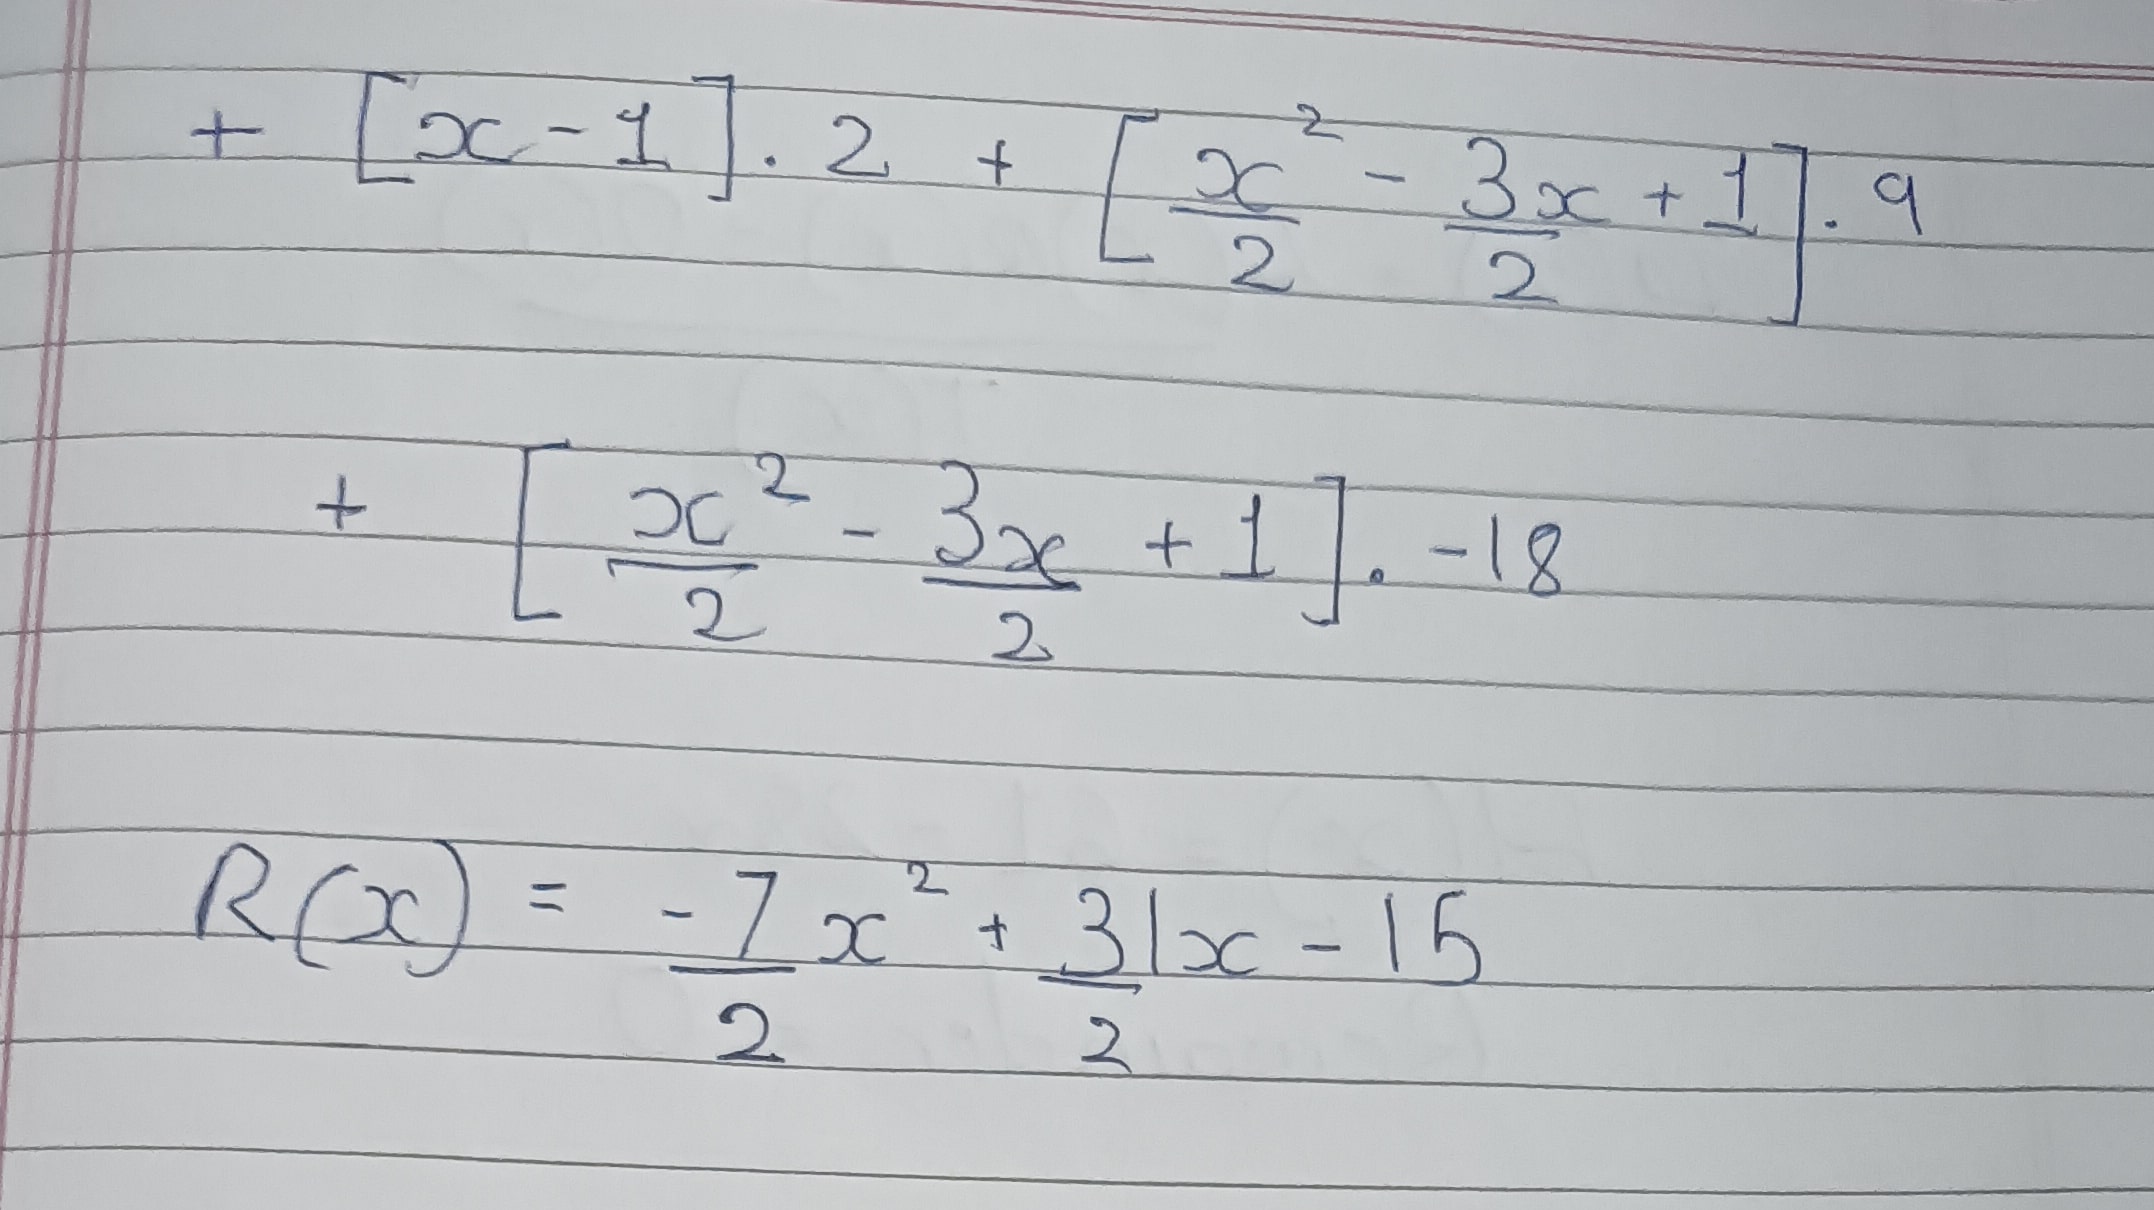 + [x - 1] . 2 + [x²/2 - 3x/2 + 1] . 9
+ [x²/2 - 3x/2 + 1] . -18
R(x) = -7/2 x² + 31x/2 - 15